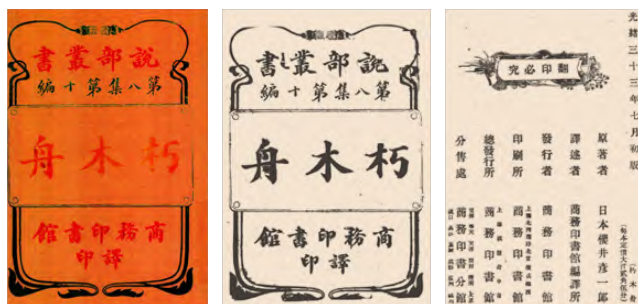 說部叢書
第八集第十編
朽木舟
商務印書館
譯印
說部叢書
第八集第十編
朽木舟
商務印書館
譯印
光緒三十三年七月初版
翻印必究
原著者 日本櫻井彥一郎
譯述者 商務印書館編譯所
發行者 商務印書館
印刷所 商務印書館
總發行所 商務印書館
分售處 商務印書分館